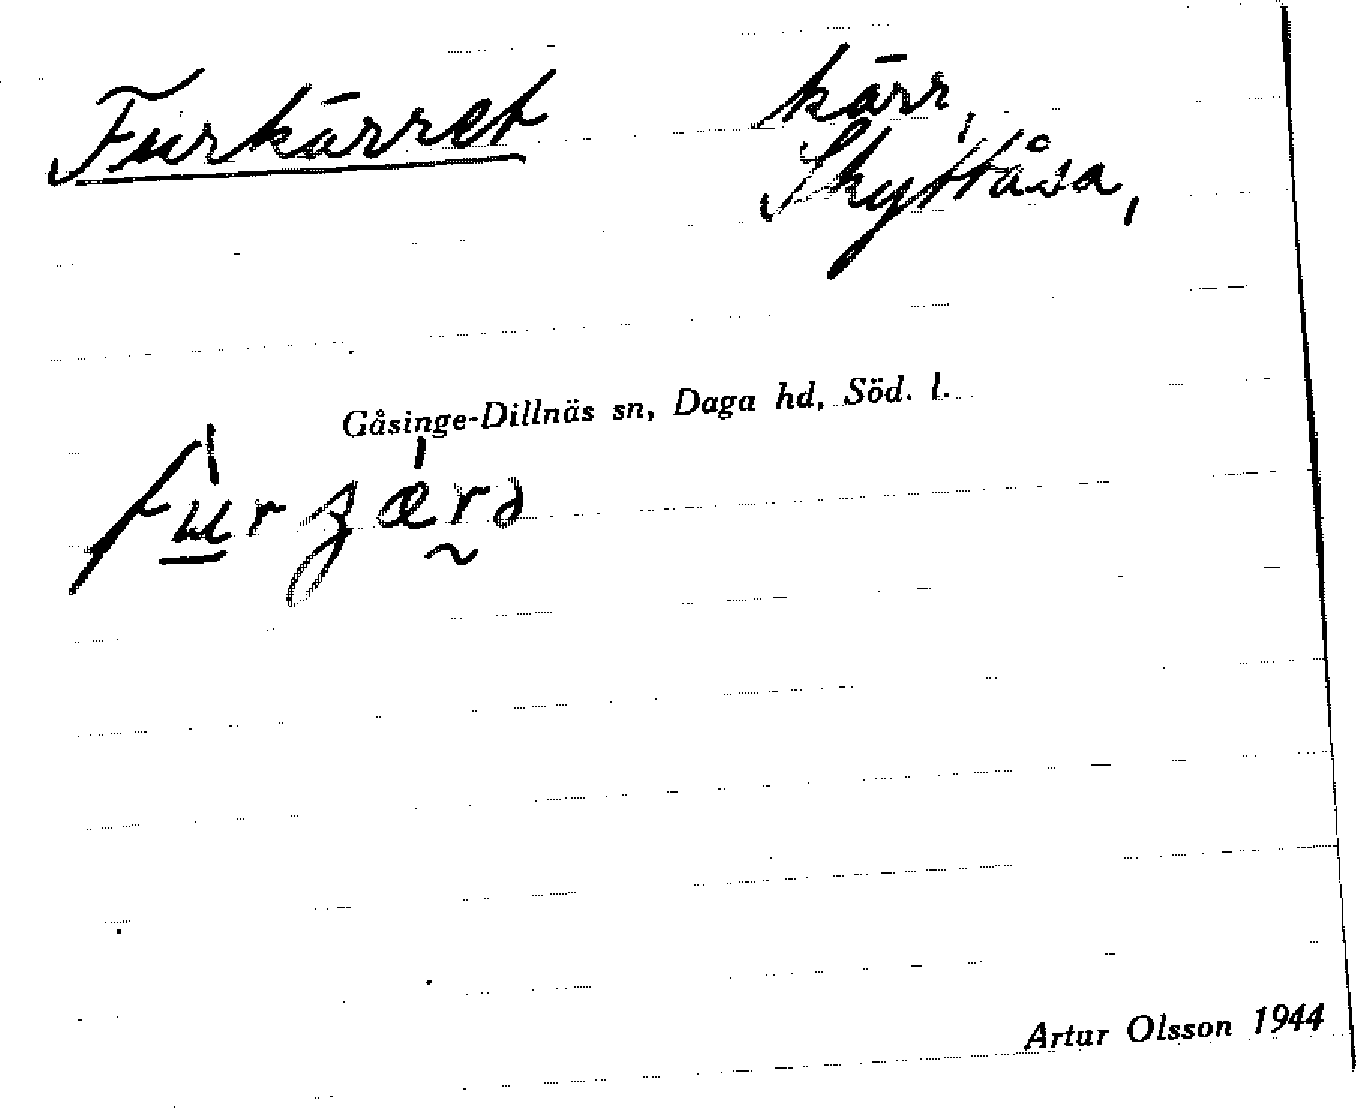 Furkärret
kärr,
Skyttåsa,
Gåsinge-Dillnäs sn, Daga hd, Söd. l.
Artur Olsson 1944